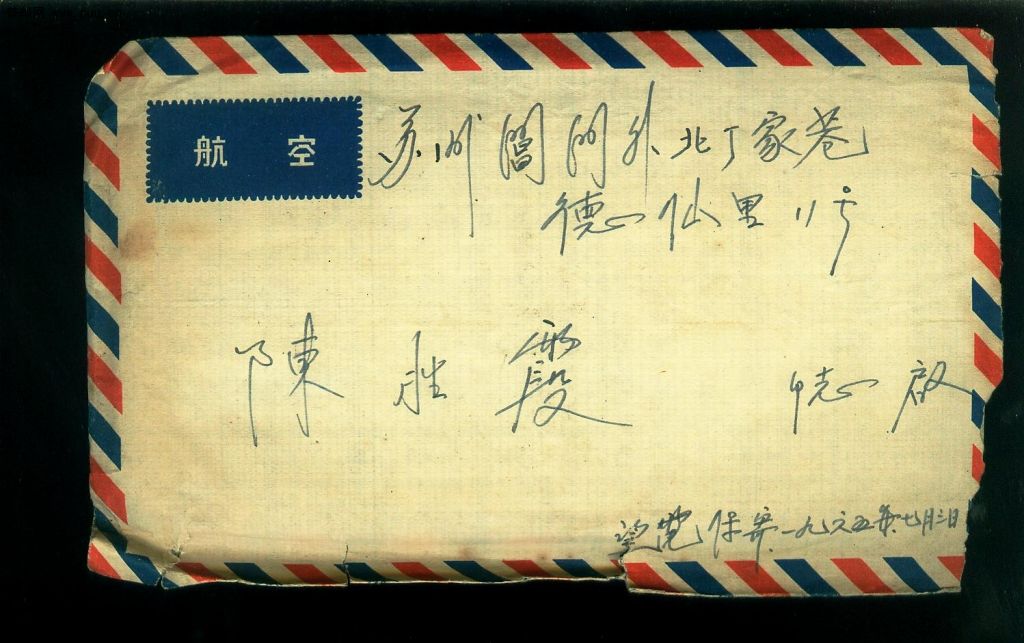 航空
苏州阊门外北丁家巷
德仙里11号
陳胜霞 同志 啟
望党保寄一九六五年七月三日